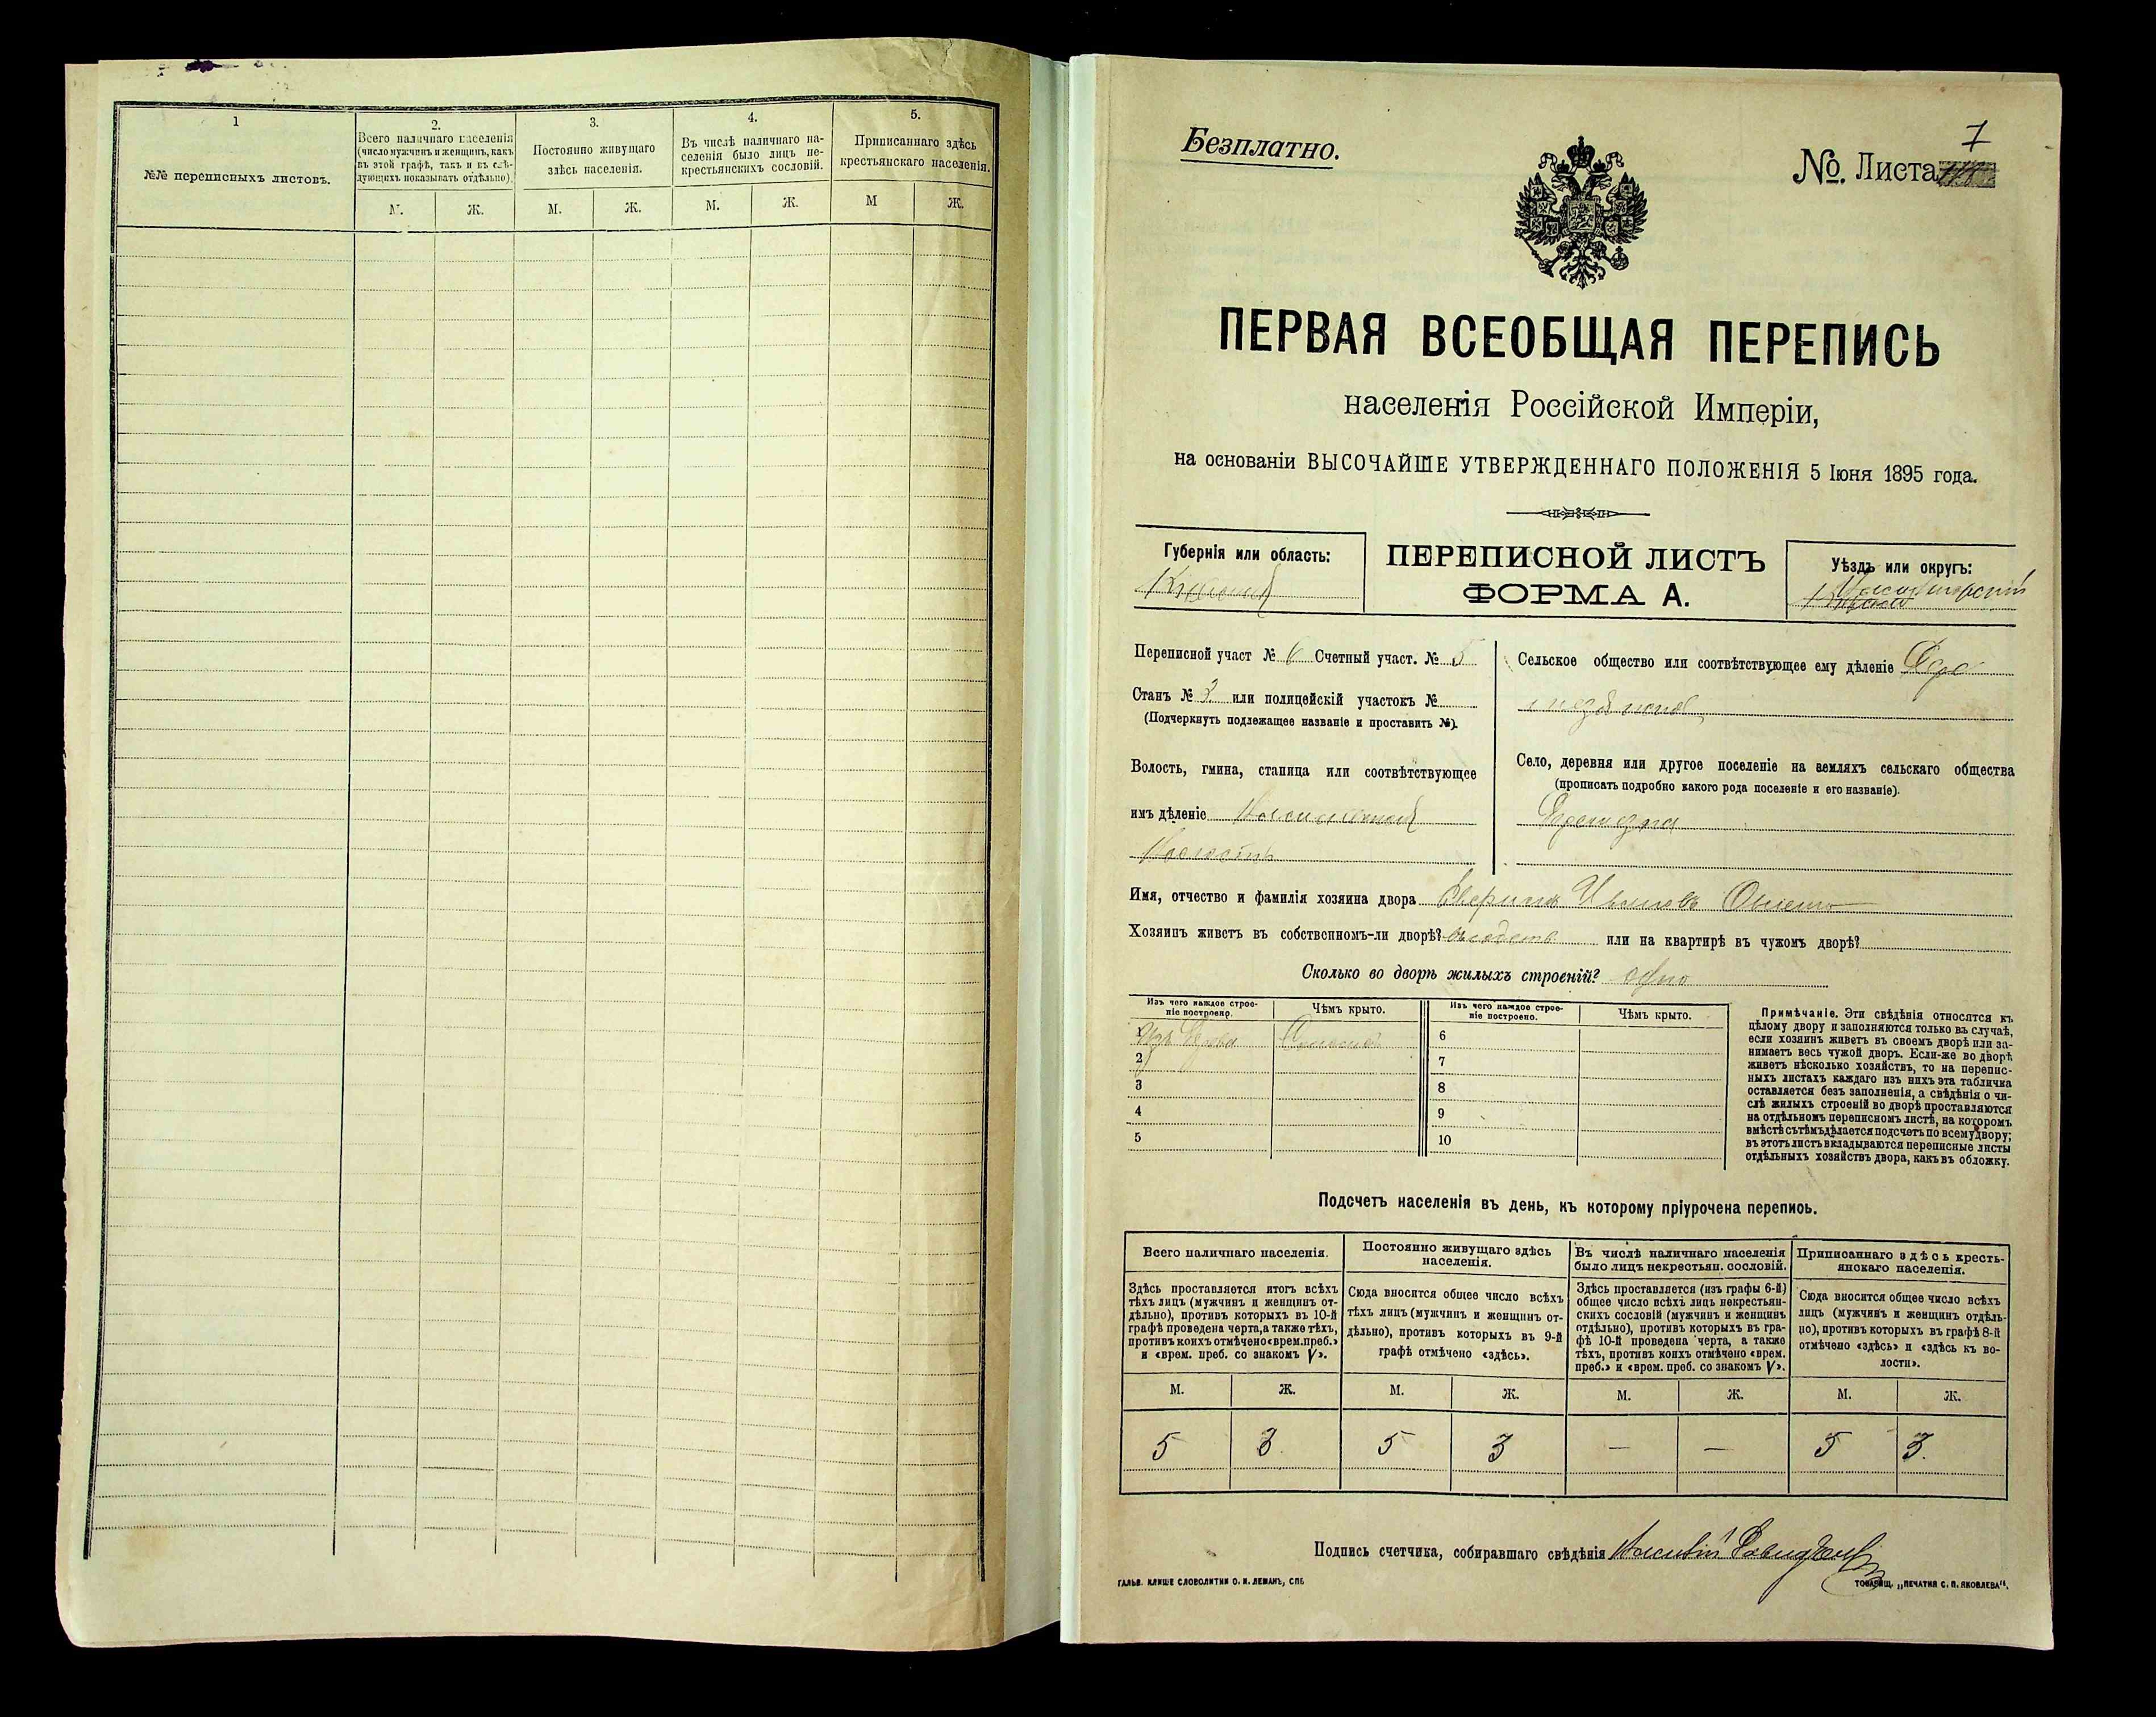 1
№№ переписныхъ листовъ.
2.
Всего наличнаго населенія
(число мужчинъ и женщинъ, какъ
въ этой графѣ, такъ и въ слѣ-
дующихъ показывать отдѣльно).
М.
Ж.
3.
Постоянно живущаго
здѣсь населенія.
М.
Ж.
4.
Въ числѣ наличнаго на-
селенія было лицъ не-
крестьянскихъ сословій.
М.
Ж.
5.
Приписаннаго здѣсь
крестьянскаго населенія.
М
Ж.
Безплатно.
7
№. Листа
ПЕРВАЯ ВСЕОБЩАЯ ПЕРЕПИСЬ
населенія Россійской Имперіи,
на основаніи ВЫСОЧАЙШЕ УТВЕРЖДЕННАГО ПОЛОЖЕНІЯ 5 Іюня 1895 года.
Губернія или область:
ПЕРЕПИСНОЙ ЛИСТЪ
ФОРМА А.
Уѣздъ или округъ:
Переписной участ № 6 Счетный участ. № 5
Станъ № 3 или полицейскій участокъ №
(Подчеркнуть подлежащее названіе и проставить №).
Волость, гмина, станица или соотвѣтствующее
имъ дѣленіе
Сельское общество или соотвѣтствующее ему дѣленіе
Село, деревня или другое поселеніе на земляхъ сельскаго общества
(прописать подробно какого рода поселеніе и его названіе).
Имя, отчество и фамилія хозяина двора
Хозяинъ живетъ въ собственномъ-ли дворѣ? или на квартирѣ въ чужомъ дворѣ?
Сколько во дворѣ жилыхъ строеній? одно
Изъ чего каждое строе-
ніе построено.
Чѣмъ крыто.
Изъ чего каждое строе-
ніе построено.
Чѣмъ крыто.
1 Изъ дерева Соломой
2
3
4
5
6
7
8
9
10
Примѣчаніе. Эти свѣдѣнія относятся къ
цѣлому двору и заполняются только въ случаѣ,
если хозяинъ живетъ въ своемъ дворѣ или за-
нимаетъ весь чужой дворъ. Если-же во дворѣ
живетъ нѣсколько хозяйствъ, то на перепис-
ныхъ листахъ каждаго изъ нихъ эта табличка
оставляется безъ заполненія, а свѣдѣнія о чи-
слѣ жилыхъ строеній во дворѣ проставляются
на отдѣльномъ переписномъ листѣ, на которомъ
вмѣстѣ съ тѣмъ дѣлается подсчетъ по всему двору;
въ этотъ листъ вкладываются переписные листы
отдѣльныхъ хозяйствъ двора, какъ въ обложку.
Подсчетъ населенія въ день, къ которому пріурочена перепись.
Всего наличнаго населенія.
Здѣсь проставляется итогъ всѣхъ
тѣхъ лицъ (мужчинъ и женщинъ от-
дѣльно), противъ которыхъ въ 10-й
графѣ проведена черта, а также тѣхъ,
противъ коихъ отмѣчено «врем. преб.»
и «врем. преб. со знакомъ V».
М.
Ж.
5
3.
Постоянно живущаго здѣсь
населенія.
Сюда вносится общее число всѣхъ
тѣхъ лицъ (мужчинъ и женщинъ от-
дѣльно), противъ которыхъ въ 9-й
графѣ отмѣчено «здѣсь».
М.
Ж.
5
3
Въ числѣ наличнаго населенія
было лицъ некрестьян. сословій.
Здѣсь проставляется (изъ графы 6-й)
общее число всѣхъ лицъ некрестьян-
скихъ сословій (мужчинъ и женщинъ
отдѣльно), противъ которыхъ въ гра-
фѣ 10-й проведена черта, а также
тѣхъ, противъ коихъ отмѣчено «врем.
преб.» и «врем. преб. со знакомъ V».
М.
Ж.
—
—
Приписаннаго здѣсь кресть-
янскаго населенія.
Сюда вносится общее число всѣхъ
лицъ (мужчинъ и женщинъ отдѣль-
но), противъ которыхъ въ графѣ 8-й
отмѣчено «здѣсь» и «здѣсь къ во-
лости».
М.
Ж.
5
3.
Подпись счетчика, собиравшаго свѣдѣнія
ГАЛЬВ. КЛИШЕ СЛОВОЛИТНИ О. И. ЛЕМАНЪ, СПБ
ТОВАРИЩ. „ПЕЧАТНЯ С. П. ЯКОВЛЕВА“.